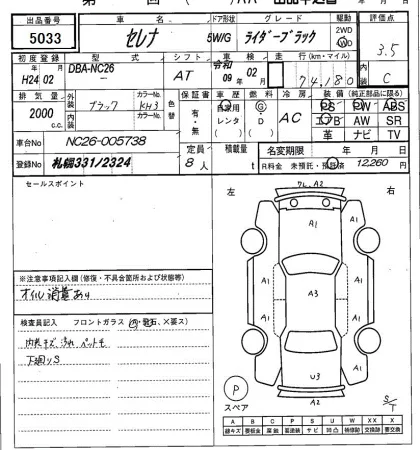 出品番号 車名 ドア形状 グレード 駆動 評価点
5033 セレナ 5W/G ライダーブラック 2WD WD 3.5
初度登録 型式 シフト 車検 走行(km・マイル) 内装
H24 02 DBA-NC26 AT 令和 09年 02月 74,180 C
排気量 外装 カラーNo. 色替 保証書 車歴 燃料 冷房 装備(純正部品に限る)
2000 cc. ブラック KH3 有・無 自家用 レンタ ( ) G・D ( ) AC PS PW ABS
内装 カラーNo. エアB AW SR
革 ナビ TV
車台No NC26-005738 定員 積載量 名変期限 年 月 日
登録No 札幌331/2324 8人 t R料金 未預託・預託済 12,260
セールスポイント
左 右
A2
A1
A1 A3 A1
A1 A1
U3
A2
※注意事項記入欄(修復・不具合箇所および状態等)
オイル消費あり
検査員記入 フロントガラス(・飛石、×要ス)
内装キズ、汚れ、ペット毛
下廻りS
P
スペア
S/T
A B C P S U W X XX